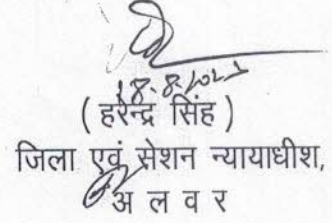 18-8-2021
( हरेन्द्र सिंह )
जिला एवं सेशन न्यायाधीश,
अ ल व र